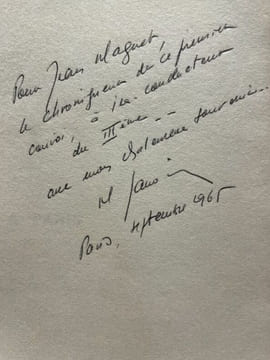 Pour Jean Magnet,
le chroniqueur de ce premier
convoi, à  conducteur
du IIIème...
avec mon  souvenir...
M
Paris, septembre 1965